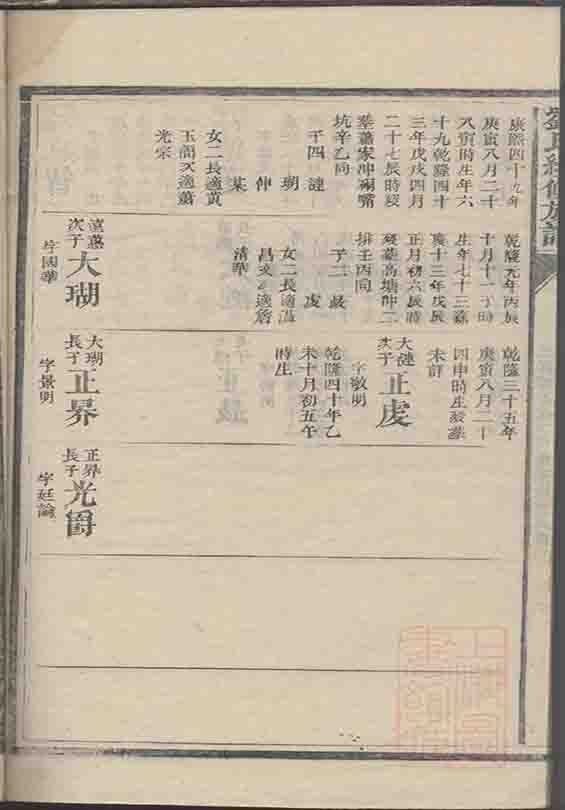 康熙四十九年
庚寅八月二十
八寅時生年六
十九乾隆四十
三年戊戌四月
二十七辰時歿
葬蕭家冲獅嘴
坑辛乙向
子四 漣
瑚
仲
某
女二長適黃
玉階次適蕭
光宗
乾隆九年丙辰
十月十一子時
生年七十三嘉
慶十三年戊辰
正月初六辰時
歿葬高塘冲二
排壬丙向
子二 敍
虔
女二長適溫
昌文次適詹
清華
次子 大瑚
字國華
乾隆三十五年
庚寅八月二十
四申時生歿葬
未詳
大漣
次子 正虔
字敬明
乾隆四十年乙
未十月初五午
時生
大瑚
長子 正界
字景明
正界
長子 光爵
字廷論